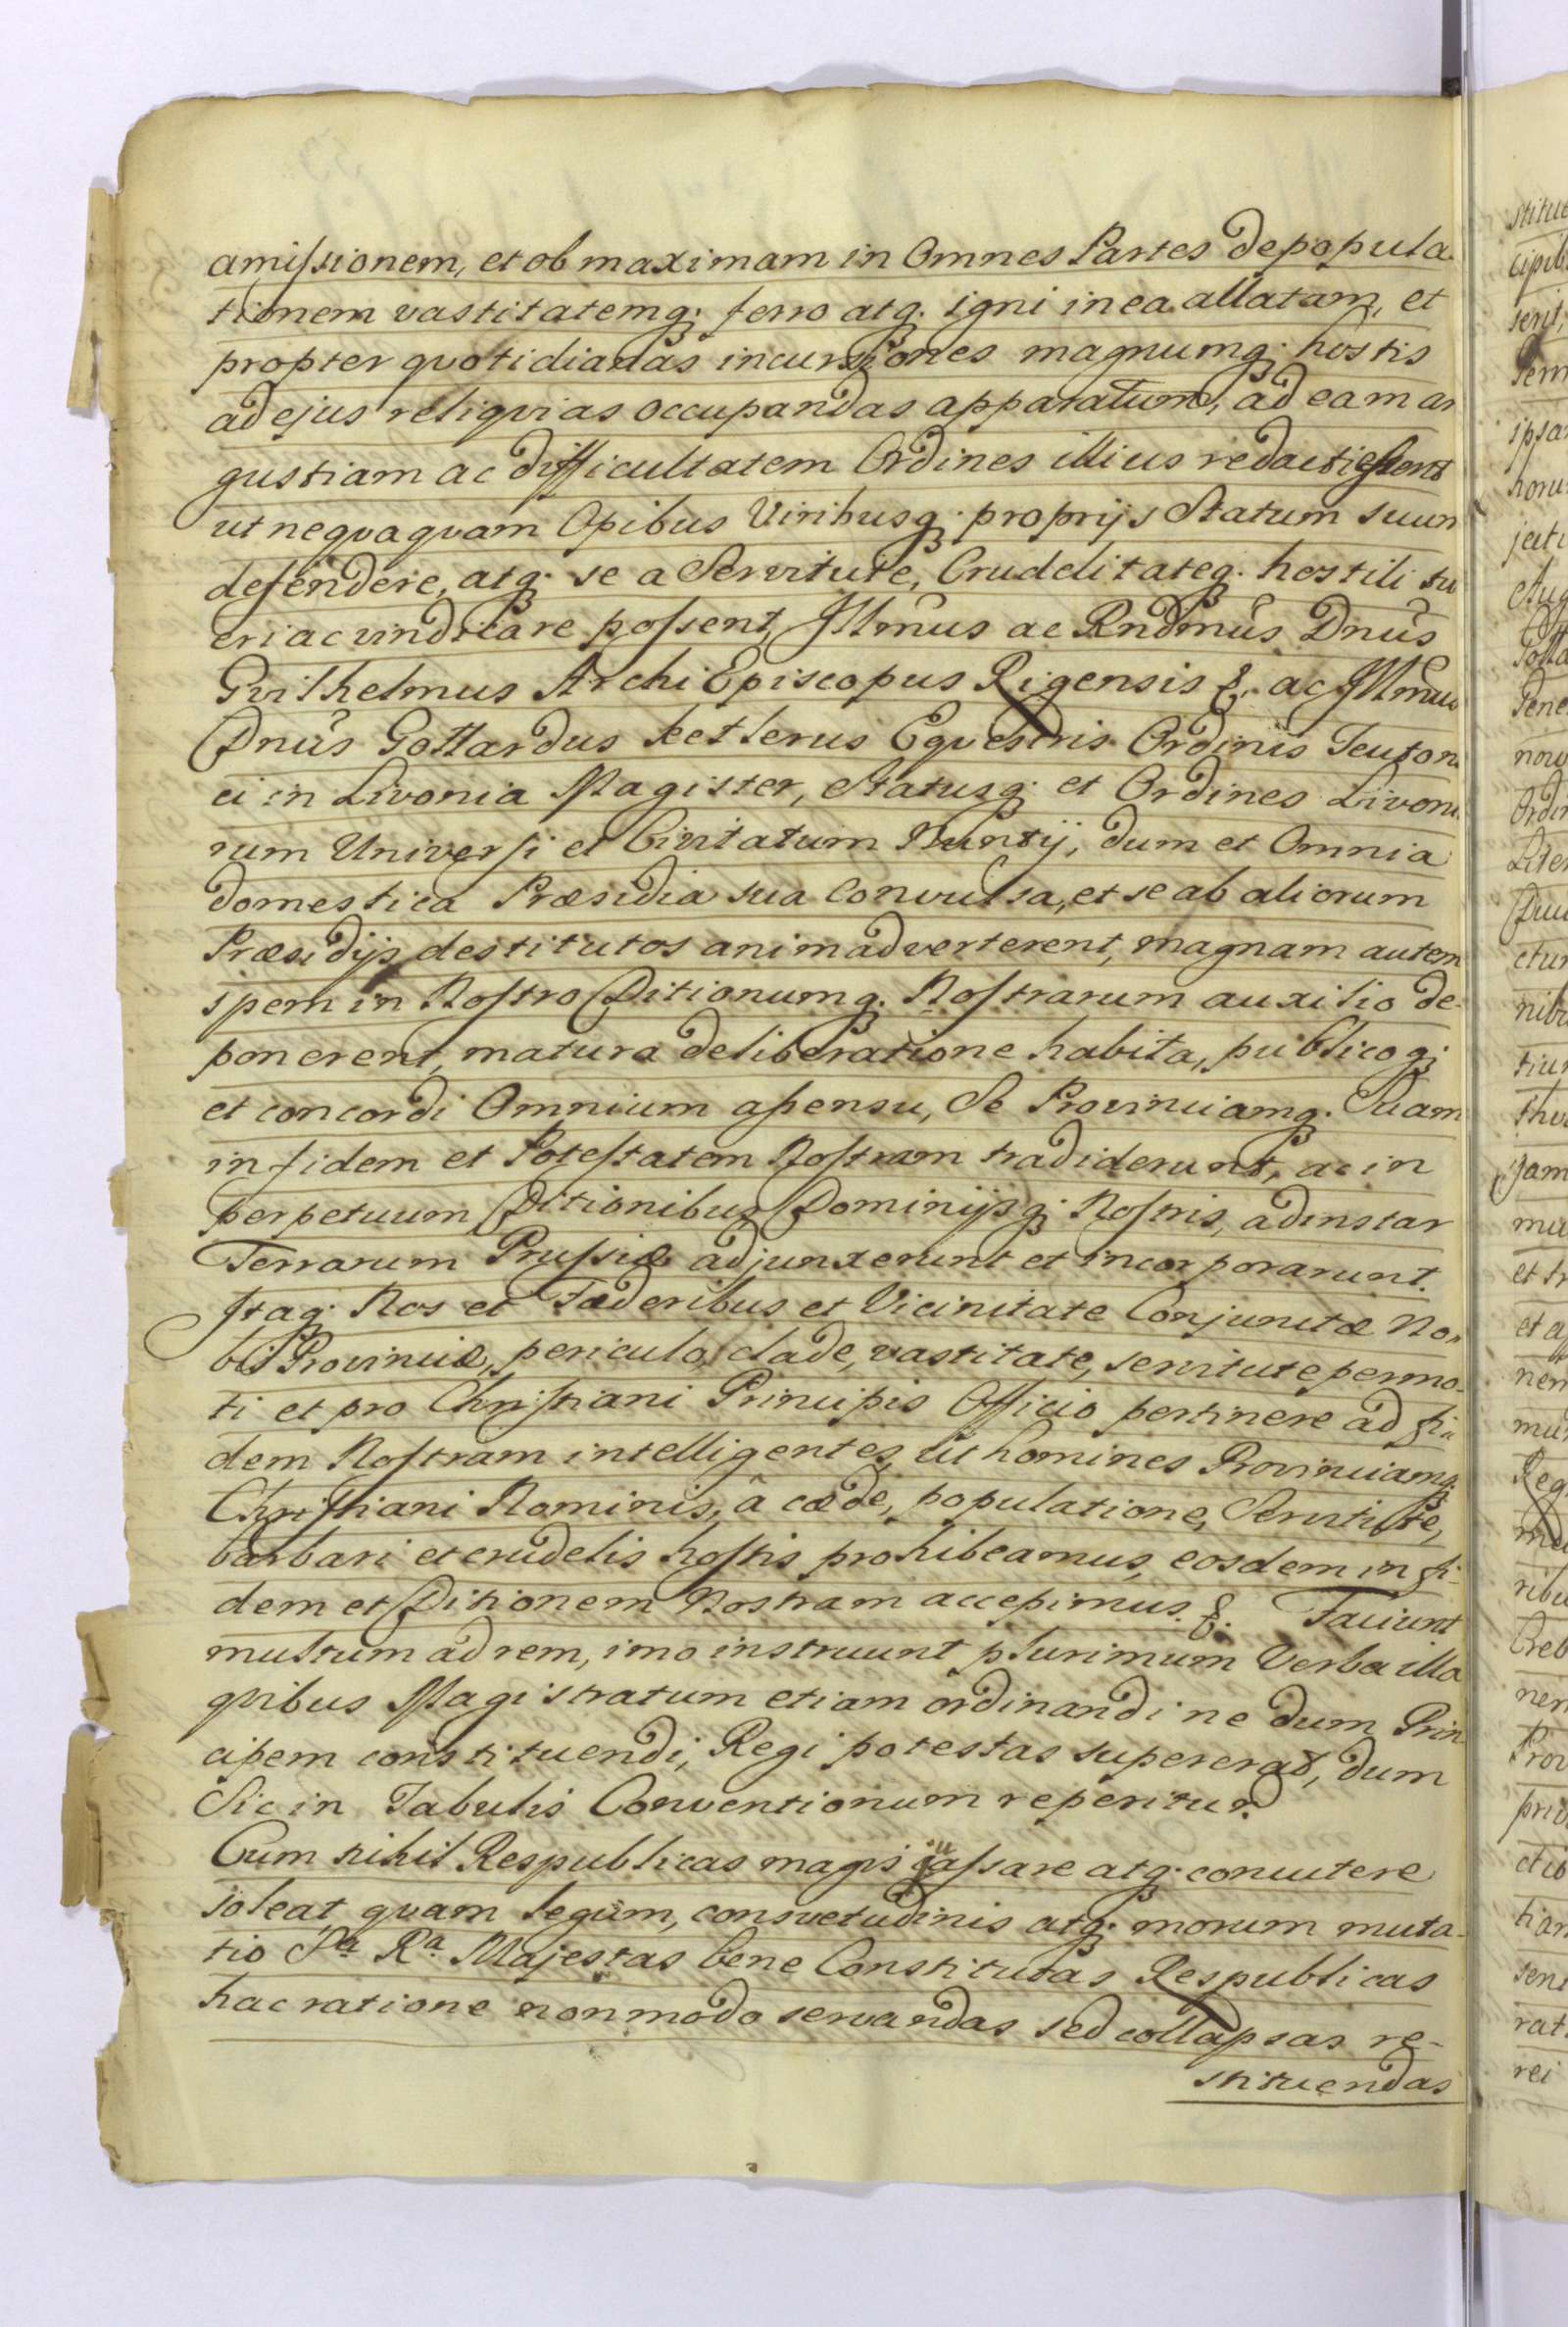 amissionem, et ob maximam in Omnes Partes depopula-
tionem vastitatemq; ferro atq; igni in ea allatam, et
propter quotidianas incursiones magnumq; hostis
ad ejus reliqvias occupandas apparatum, ad eam an
gustiam ac difficultatem Ordines illius redacti essent
ut neqvaqvam Opibus Viribusq; proprijs Statum suum
defendere, atq; se a Servitute, Crudelitateq; hostili tu
eri ac vindicare possent, Illmus ac Rndmus Dnus
Gvilhelmus ArchiEpiscopus Rigensis &. ac Illmus
Dnus Gottardus Ketlerus Eqvestris Ordinis Teuton
ci in Livonia Magister, Statusq; et Ordines Livon
rum Universi et Civitatum Nuntij, dum et Omnia
domestica Præsidia sua Convulsa, et se ab aliorum
Præsidijs destitutos animadverterent, magnam autem
spem in Nostro Ditionumq; Nostrarum auxilio de-
ponerent, matura deliberatione habita, publicoq;
et concordi Omnium assensu, Se Provinciamq; Suam
in fidem et Potestatem Nostram tradiderunt, ac in
perpetuum Ditionibus Dominijsq; Nostris, ad instar
Terrarum Prussiæ adjunxerunt et incorporarunt.
Itaq; Nos et Fæderibus et Vicinitate Conjunctæ No-
bis Provinciæ, periculo, clade, vastitate, servitute permo-
ti et pro Christiani Principis Officio pertinere ad fi-
dem Nostram intelligentes, ut homines Provinciamq;
Christiani Nominis, â cæde, populatione, Servitute,
barbari et crudelis hostis prohibeamus, eosdem in fi-
dem et Ditionem Nostram accepimus. &. Faciunt
multum ad rem, imo instruunt plurimum Verba illa
qvibus Magistratum etiam ordinandi ne dum Prin
cipem constituendi, Regi potestas supererat, dum
Sic in Tabulis Conventionum reperitur.
Cum nihil Respublicas magis qvassare atq; concutere
soleat, qvam legum, consvetudinis atq; morum muta-
tio Sa Ra Majestas bene Constitutas Respublicas
hac ratione non modo servandas sed collapsas re-
stituendas